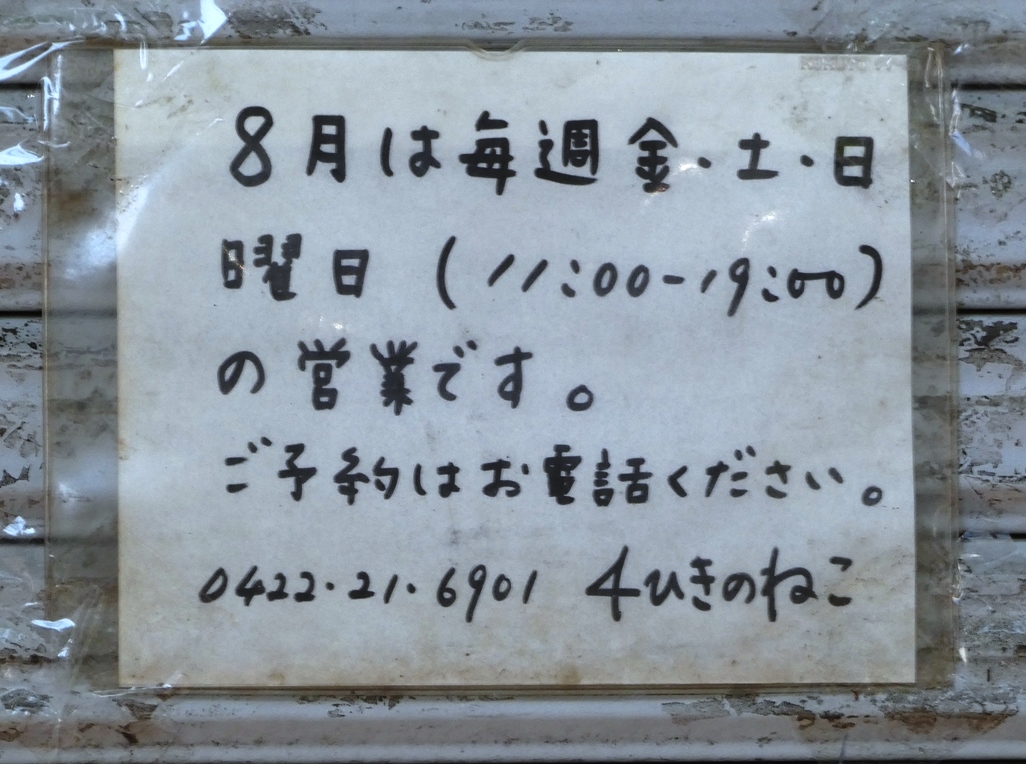 8月は毎週金・土・日
曜日 (11:00-19:00)
の営業です。
ご予約はお電話ください。
0422・21・6901 4ひきのねこ